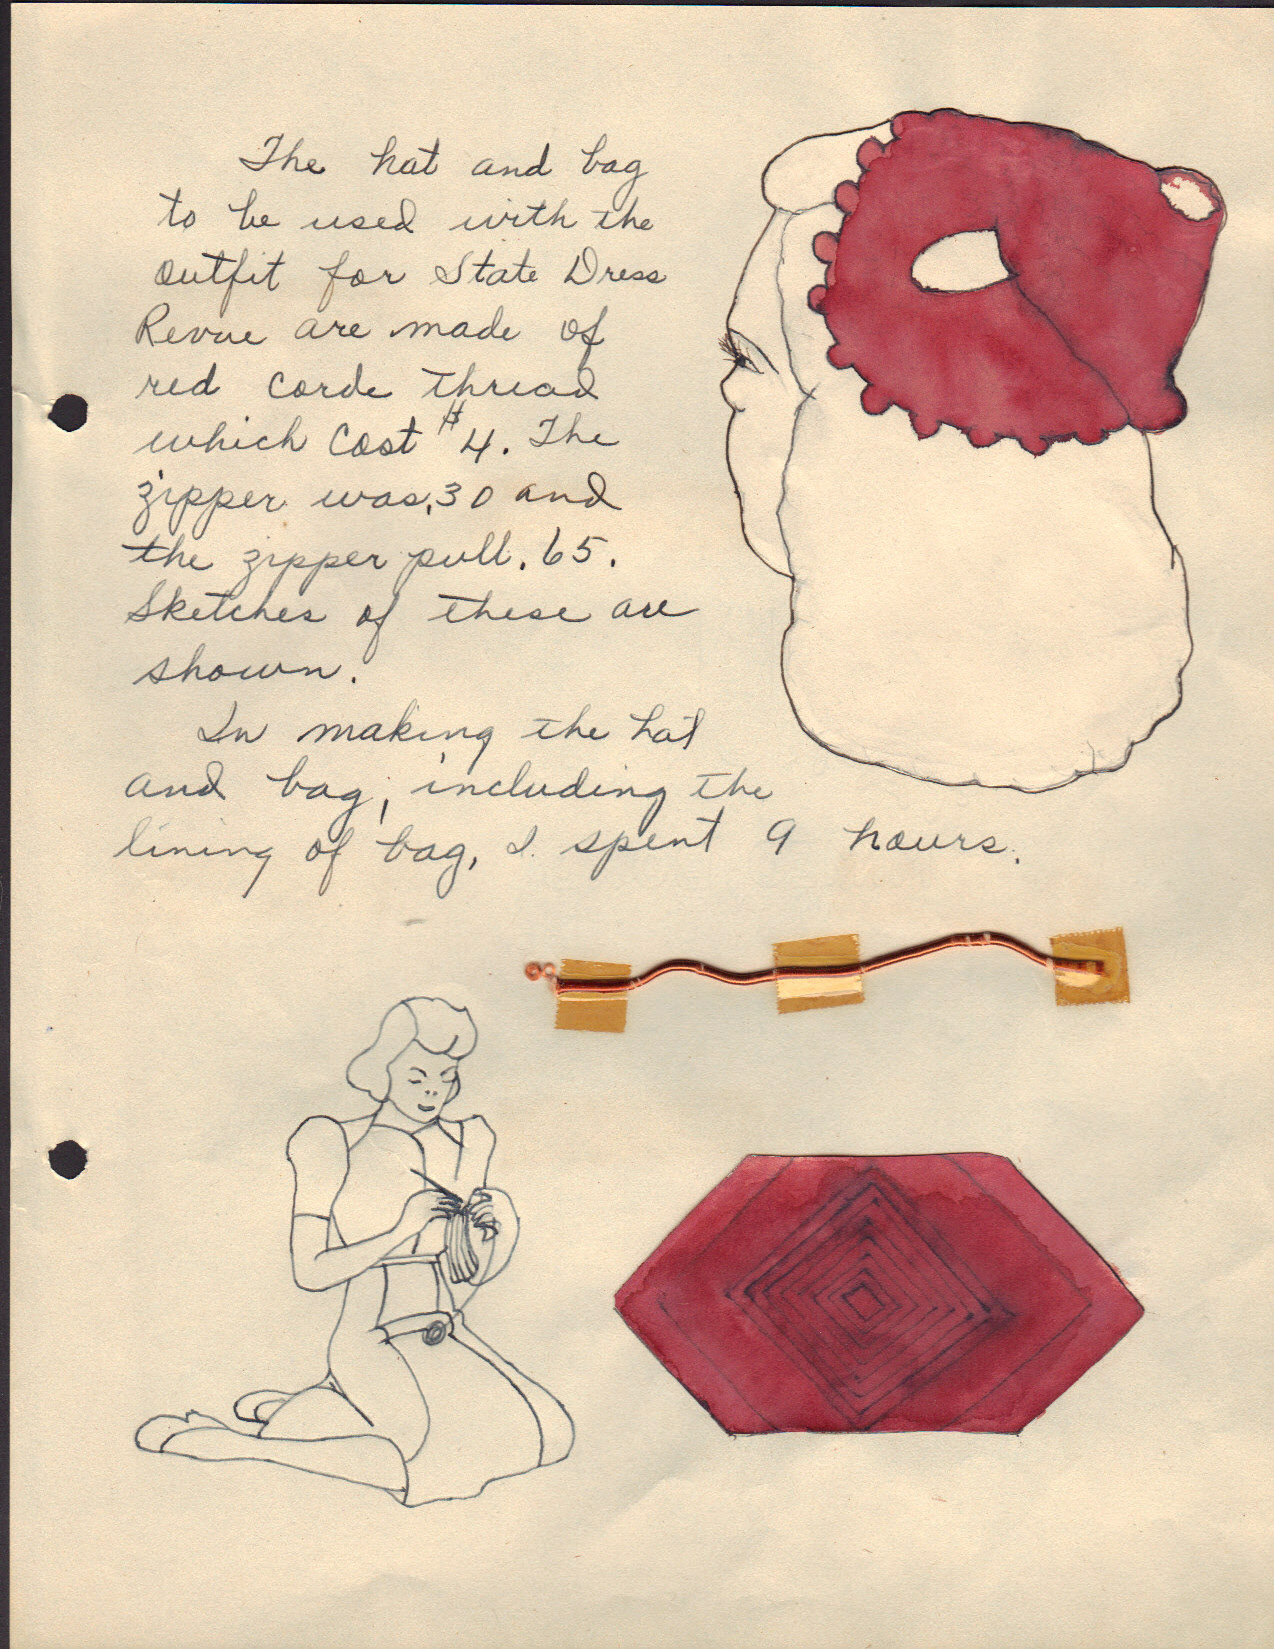 The hat and bag
to be used with the
outfit for State Dress
Revue are made of
red corde thread
which cost $4. The
zipper was .30 and
the zipper pull .65.
Sketches of these are
shown.
In making the hat
and bag, including the
lining of bag, I spent 9 hours.